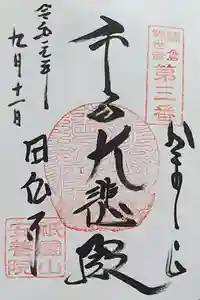 鎌倉
観世音
第三番
千手大悲殿
令和元年
九月十一日
田代寺
祇園山
安養院